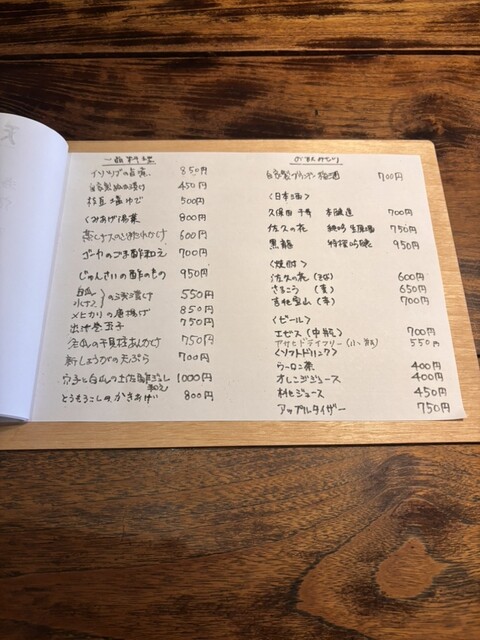 一品料理
850円
自家製ぬか漬け 450円
枝豆塩ゆで 500円
くみあげ湯葉 800円
蒸しナスの 600円
ゴーヤのごま酢和え 700円
じゅんさいの酢のもの 950円
の浅漬け 550円
メヒカリの唐揚げ 850円
出汁巻玉子 750円
あんかけ 750円
新しょうがの天ぷら 700円
1000円
とうもろこしのかきあげ 800円
お飲みもの
自家製ブランデー梅酒 700円
<日本酒>
久保田 千寿 本醸造 700円
佐久の花 純吟 生原酒 750円
黒龍 特撰吟醸 950円
<焼酎>
佐久の花 (そば) 600円
(麦) 650円
吉兆宝山 (芋) 700円
<ビール>
エビス (中瓶) 700円
アサヒドライフリー (小瓶) 550円
<ソフトドリンク>
ウーロン茶 400円
オレンジジュース 400円
ジュース 450円
アップルタイザー 750円